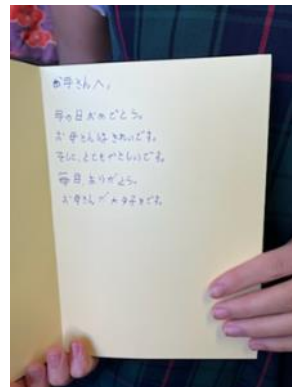 お母さんへ、
母の日おめでとう。
お母さんはきれいです。
そして、とてもやさしいです。
毎日、ありがとう。
お母さんが大好きです。